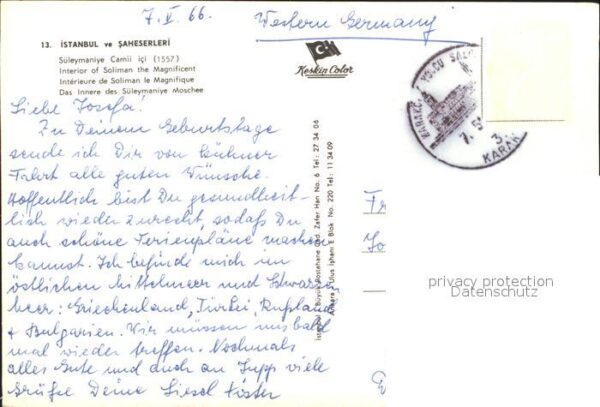 7. V. 66.
Western Germany
13. İSTANBUL ve ŞAHESERLERİ
Süleymaniye Camii içi (1557)
Interior of Soliman the Magnificent
Intérieure de Soliman le Magnifique
Das Innere des Süleymaniye Moschee
Keskin Color
Liebe Josefa!
Zu Deinem Geburtstage
sende ich Dir von kühner
Fahrt alle guten Wünsche.
Hoffentlich bist Du gesundheit-
lich wieder zurecht, sodaß Du
auch schöne Ferienpläne machen
kannst. Ich befinde mich im
östlichen Mittelmeer und Schwarzen
Meer: Griechenland, Türkei, Rußland
+ Bulgarien. Wir müssen uns bald
mal wieder treffen. Nochmals
alles Gute und auch an Jupp viele
Grüße Deine Liesel Köster
Zafer Han No. 6 Tel: 27 34 06
Ankara Ulus İşhanı E Blok No. 220 Tel: 11 34 09
KARAKÖY YOLCU SALO
KARAK
Fr
Jo
privacy protection
Datenschutz